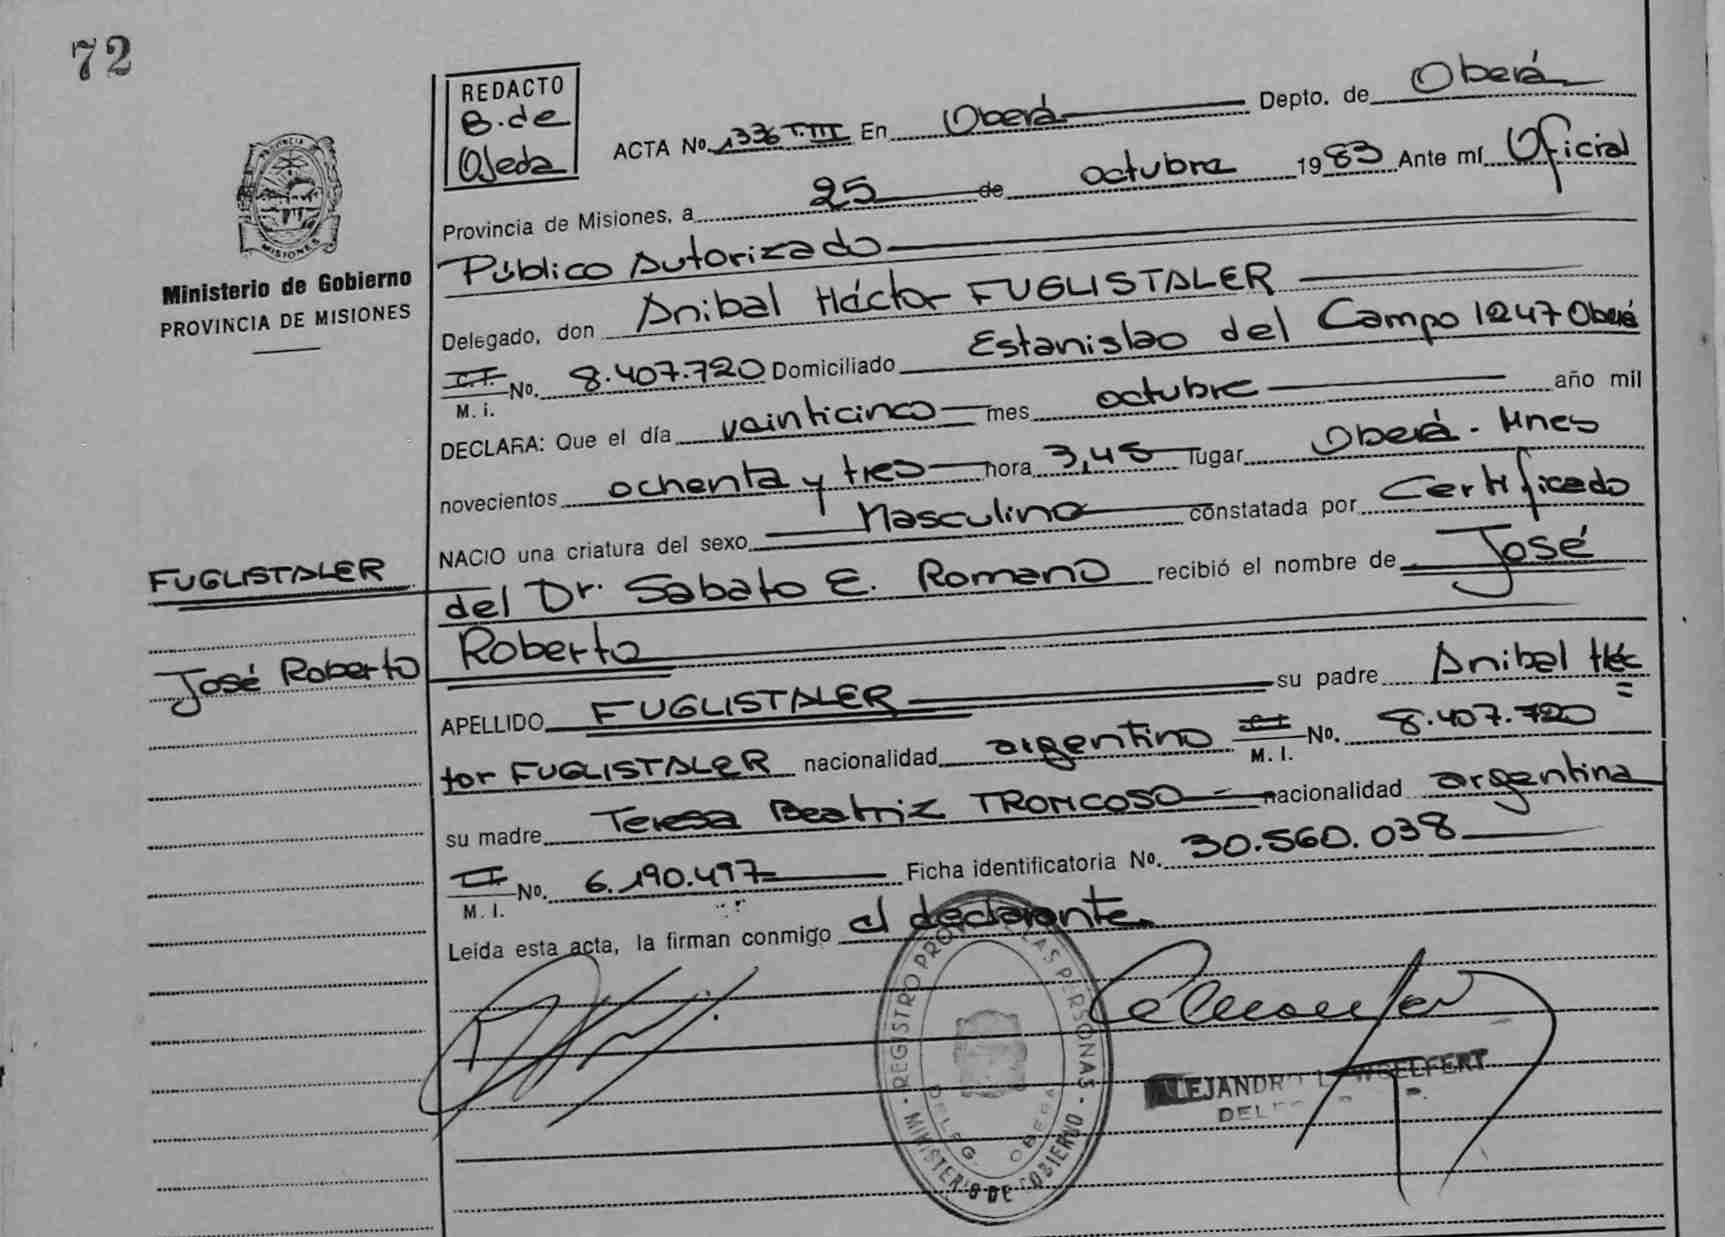 72
REDACTO
B. de
Ojeda
ACTA No. 1336 T. III En Oberá Depto. de Oberá
Provincia de Misiones, a 25 de octubre 1983 Ante mí Oficial
Público Autorizado
Delegado, don Anibal Héctor FUGLISTALER
C.I. No. 8.407.720 Domiciliado Estanislao del Campo 1247 Oberá
M. i.
DECLARA: Que el día vainticinco mes octubre año mil
novecientos ochenta y tres hora 3,45 lugar Oberá - Mnes
NACIO una criatura del sexo Masculino constatada por Certificado
del Dr. Sabato E. Romano recibió el nombre de José
Roberto
APELLIDO FUGLISTALER su padre Anibal Héc
tor FUGLISTALER nacionalidad argentino C.I. No. 8.407.720
M. I.
su madre Teresa Beatriz TRONCOSO nacionalidad argentina
C.I. No. 6.190.497 Ficha identificatoria No. 30.560.038
M. I.
Leída esta acta, la firman conmigo el declarante.
PROVINCIA
MISIONES
Ministerio de Gobierno
PROVINCIA DE MISIONES
FUGLISTALER
José Roberto
REGISTRO PROV LAS PERSONAS
MINISTERIO DE GOBIERNO
DELEG. OBERA
ALEJANDRO